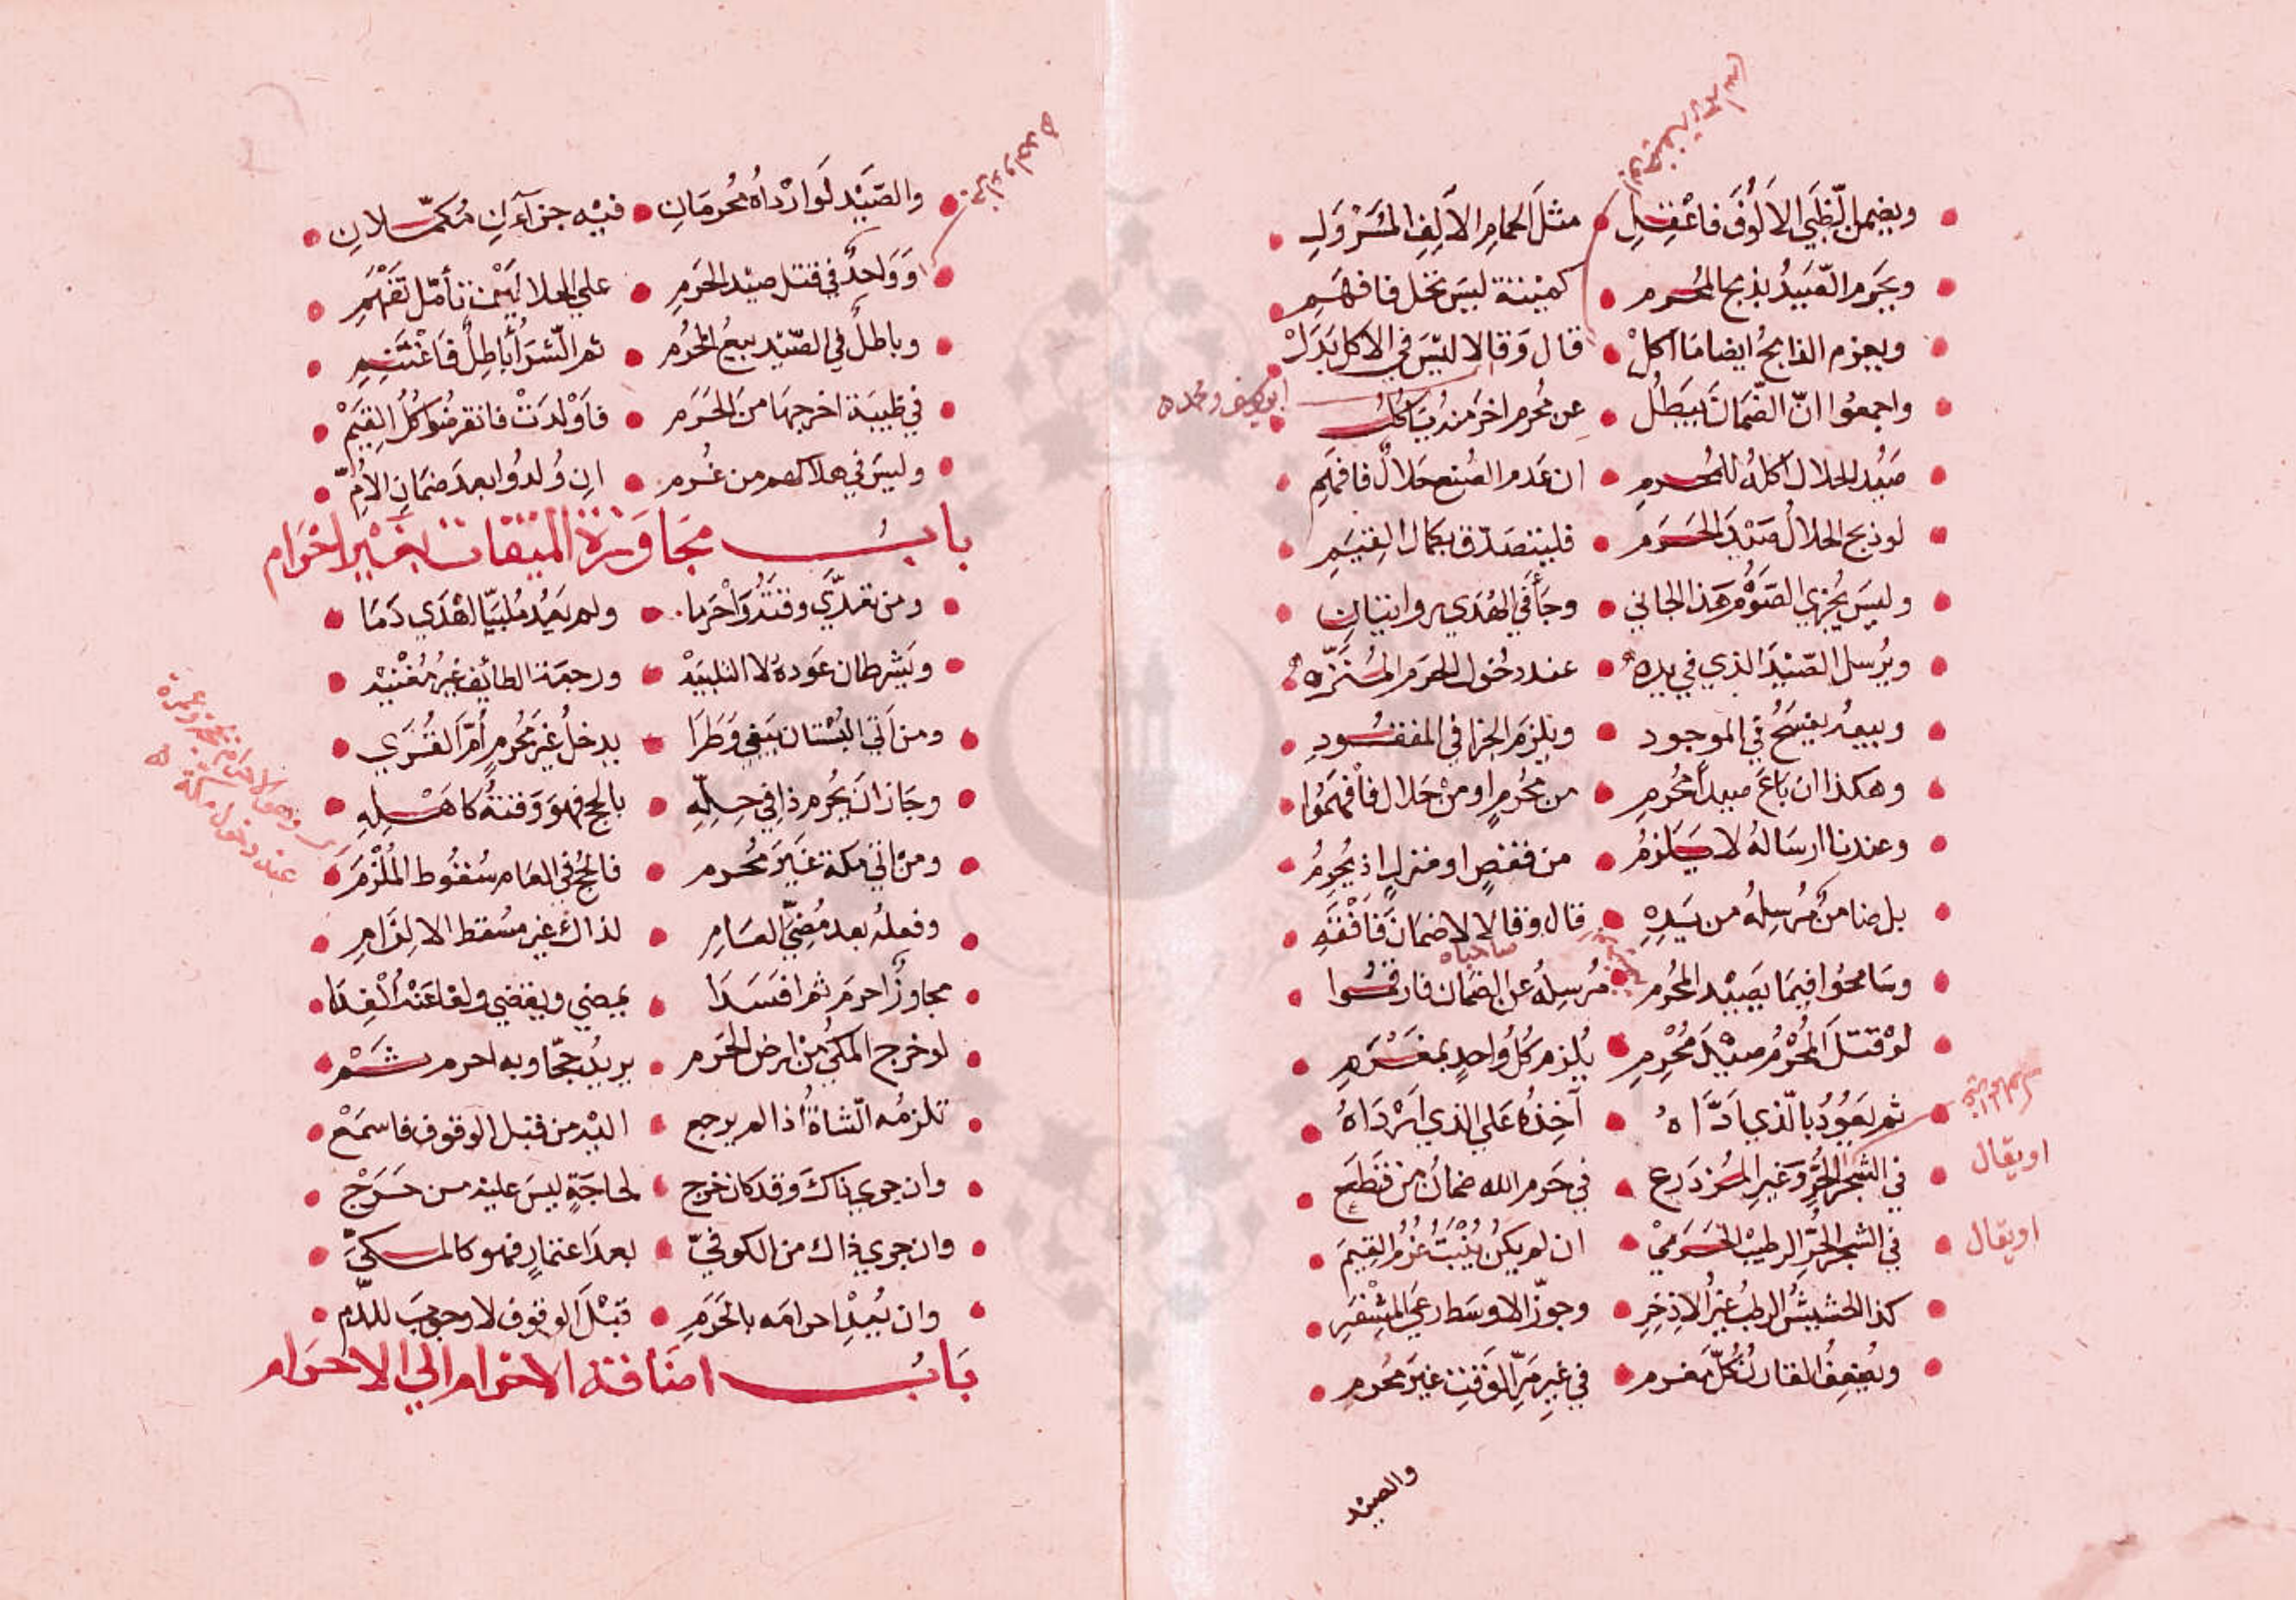 ويضمن الظبي الالوف فاعقل مثل الحمام الآلف المسرول
ويحرم الصيد بذبح المحرم كميتة ليس تحل فافهم
ويغرم الذابح ايضا ما اكل قال وقالا ليس في الاكل بدل
واجمعوا ان الضمان يبطل عن محرم اخر منه ياكل
صيد الحلال اكله للمحرم ان عدم الصنع حلال فافهم
لو ذبح الحلال صيد الحرم فليتصدق بكمال القيم
وليس يجزي الصوم هذا الجاني وجا في الهدي روايتان
ويرسل الصيد الذي في يده عند دخول الحرم المنزه
وبيعه يفسخ في الموجود ويلزم الجزا في المفقود
وهكذا ان باع صيدا محرم من محرم او من حلال فافهموا
وعندنا ارساله لا يلزم من قفص او منزل اذ يحرم
بل ضامن مرسله من يده قال وقالا لا ضمان فافقه
صاحباه
وسامحوا فيما يصيد المحرم مرسله عن الضمان فارقموا
لو قتل المحرم صيد محرم يلزم كل واحد بمغرم
ثم يعود بالذي اداه آخذه على الذي ارداه
في الشجر الحر وغير المزدرع في حرم الله ضمان من قطع
اويقال
في الشجر الحر الرطيب الحرمي ان لم يكن ينبت غرم القيم
اويقال
كذا الحشيش الرطب غير الاذخر وجوز الاوسط رعي المثفر
ويضعف القارن كل مغرم في غير مر الوقت غير محرم
والصيد
ابو يوسف ومحمد
والصيد لو ارداه محرمان فيه جزآءان مكملان
وواحد في قتل صيد الحرم على الحلالين تأمل تفهم
وباطل في الصيد بيع المحرم ثم الشرا باطل فاغتنم
في ظبية اخرجها من الحرم فاولدت فانقرضوا كل القيم
وليس في هلاكهم من غرم ان ولدوا بعد ضمان الام
باب مجاوزة الميقات بغير احرام
ومن تعدي وقته واحرما ولم يعد ملبيا اهدي دما
ويشرطان عوده لا التلبيه ورجعة الطائف غير مغنيه
ومن اتى البستان يبغي وطرا يدخل غير محرم ام القرى
وجاز ان يحرم ذا في حله بالحج فهو وقته كاهله
ومن اتى مكة غير محرم فالحج في العام سقوط الملزم
وفعله بعد مضي العام لذاك غير مسقط الالزام
مجاوز احرم ثم افسدا يمضي ويقضي ولغا عنه الفدا
لو خرج المكي من ارض الحرم يريد حجا وبه احرم ثم
تلزمه الشاة اذا لم يرجع اليه من قبل الوقوف فاسمع
وان جرى ذاك وقد كان خرج لحاجة ليس عليه من حرج
وان جرى ذاك من الكوفي بعد اعتمار فهو كالمكي
وان يعد احرامه بالحرم قبل الوقوف لا وجوب للدم
باب اضافة الاحرام الى الاحرام
عند دخول مكة